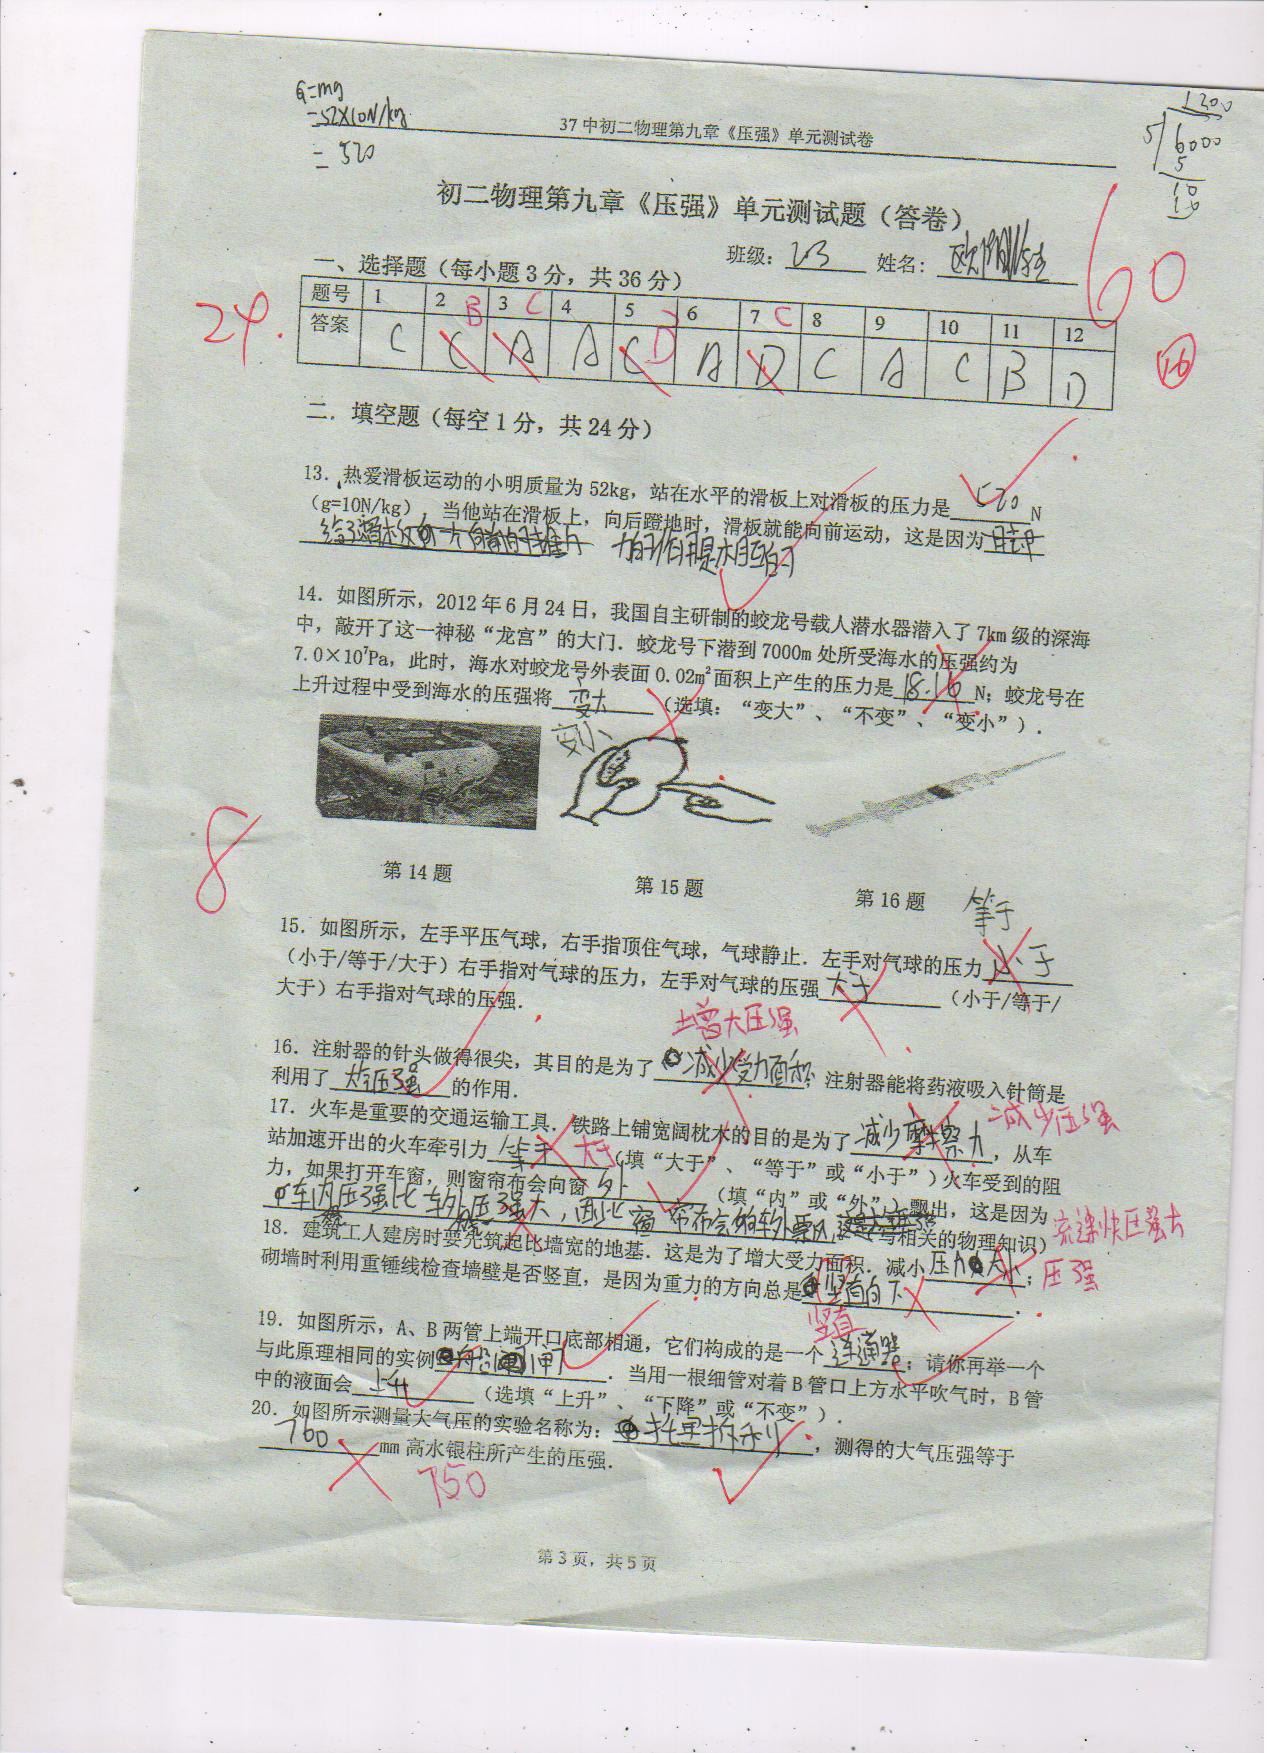 G=mg
=52×10N/kg
= 520
1200
5 6000
5
10
10
37中初二物理第九章《压强》单元测试卷
初二物理第九章《压强》单元测试题（答卷）
班级：203 姓名：
60
16
一、选择题（每小题3分，共36分）
24.
题号 1 2 3 4 5 6 7 8 9 10 11 12
B C D C
答案 C C A A C A D C A C B D
二．填空题（每空1分，共24分）
13．热爱滑板运动的小明质量为52kg，站在水平的滑板上对滑板的压力是520N
（g=10N/kg）　当他站在滑板上，向后蹬地时，滑板就能向前运动，这是因为
力的作用是相互的
14．如图所示，2012年6月24日，我国自主研制的蛟龙号载人潜水器潜入了7km级的深海
中，敲开了这一神秘“龙宫”的大门．蛟龙号下潜到7000m处所受海水的压强约为
7.0×10⁷Pa，此时，海水对蛟龙号外表面0.02m²面积上产生的压力是18.16N；蛟龙号在
上升过程中受到海水的压强将变大（选填：“变大”、“不变”、“变小”）．
变小
8
第14题
第15题
第16题
等于
15．如图所示，左手平压气球，右手指顶住气球，气球静止．左手对气球的压力小于
（小于/等于/大于）右手指对气球的压力，左手对气球的压强大于（小于/等于/
大于）右手指对气球的压强．
增大压强
16．注射器的针头做得很尖，其目的是为了减少受力面积，注射器能将药液吸入针筒是
利用了大气压强的作用．
17．火车是重要的交通运输工具．铁路上铺宽阔枕木的目的是为了减少摩察力，从车
减少压强
站加速开出的火车牵引力等于（填“大于”、“等于”或“小于”）火车受到的阻
大于
力，如果打开车窗，则窗帘布会向窗外（填“内”或“外”）飘出，这是因为
车内压强比车外压强大，因此窗帘布会向车外飘（写相关的物理知识）
流速快压强大
18．建筑工人建房时要先筑起比墙宽的地基．这是为了增大受力面积．减小压力大小；
压强
砌墙时利用重锤线检查墙壁是否竖直，是因为重力的方向总是竖直向下．
竖直
19．如图所示，A、B两管上端开口底部相通，它们构成的是一个连通器；请你再举一个
与此原理相同的实例船闸．当用一根细管对着B管口上方水平吹气时，B管
中的液面会上升（选填“上升”、“下降”或“不变”）．
20．如图所示测量大气压的实验名称为：托里拆利，测得的大气压强等于
760mm高水银柱所产生的压强．
750
第3页，共5页